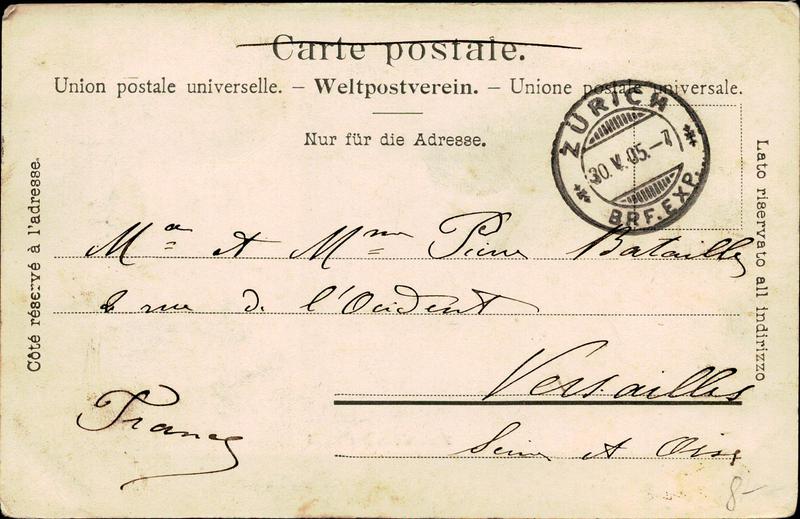 Carte postale.
Union postale universelle. – Weltpostverein. – Unione postale universale.
Nur für die Adresse.
ZÜRICH
30.V.05.-7
BRF. EXP.
Côté réservé à l'adresse.
Lato riservato all indirizzo
Mr et Mme Pierre Bataille
2 rue de l'Occident
Versailles
Seine et Oise
France
8-